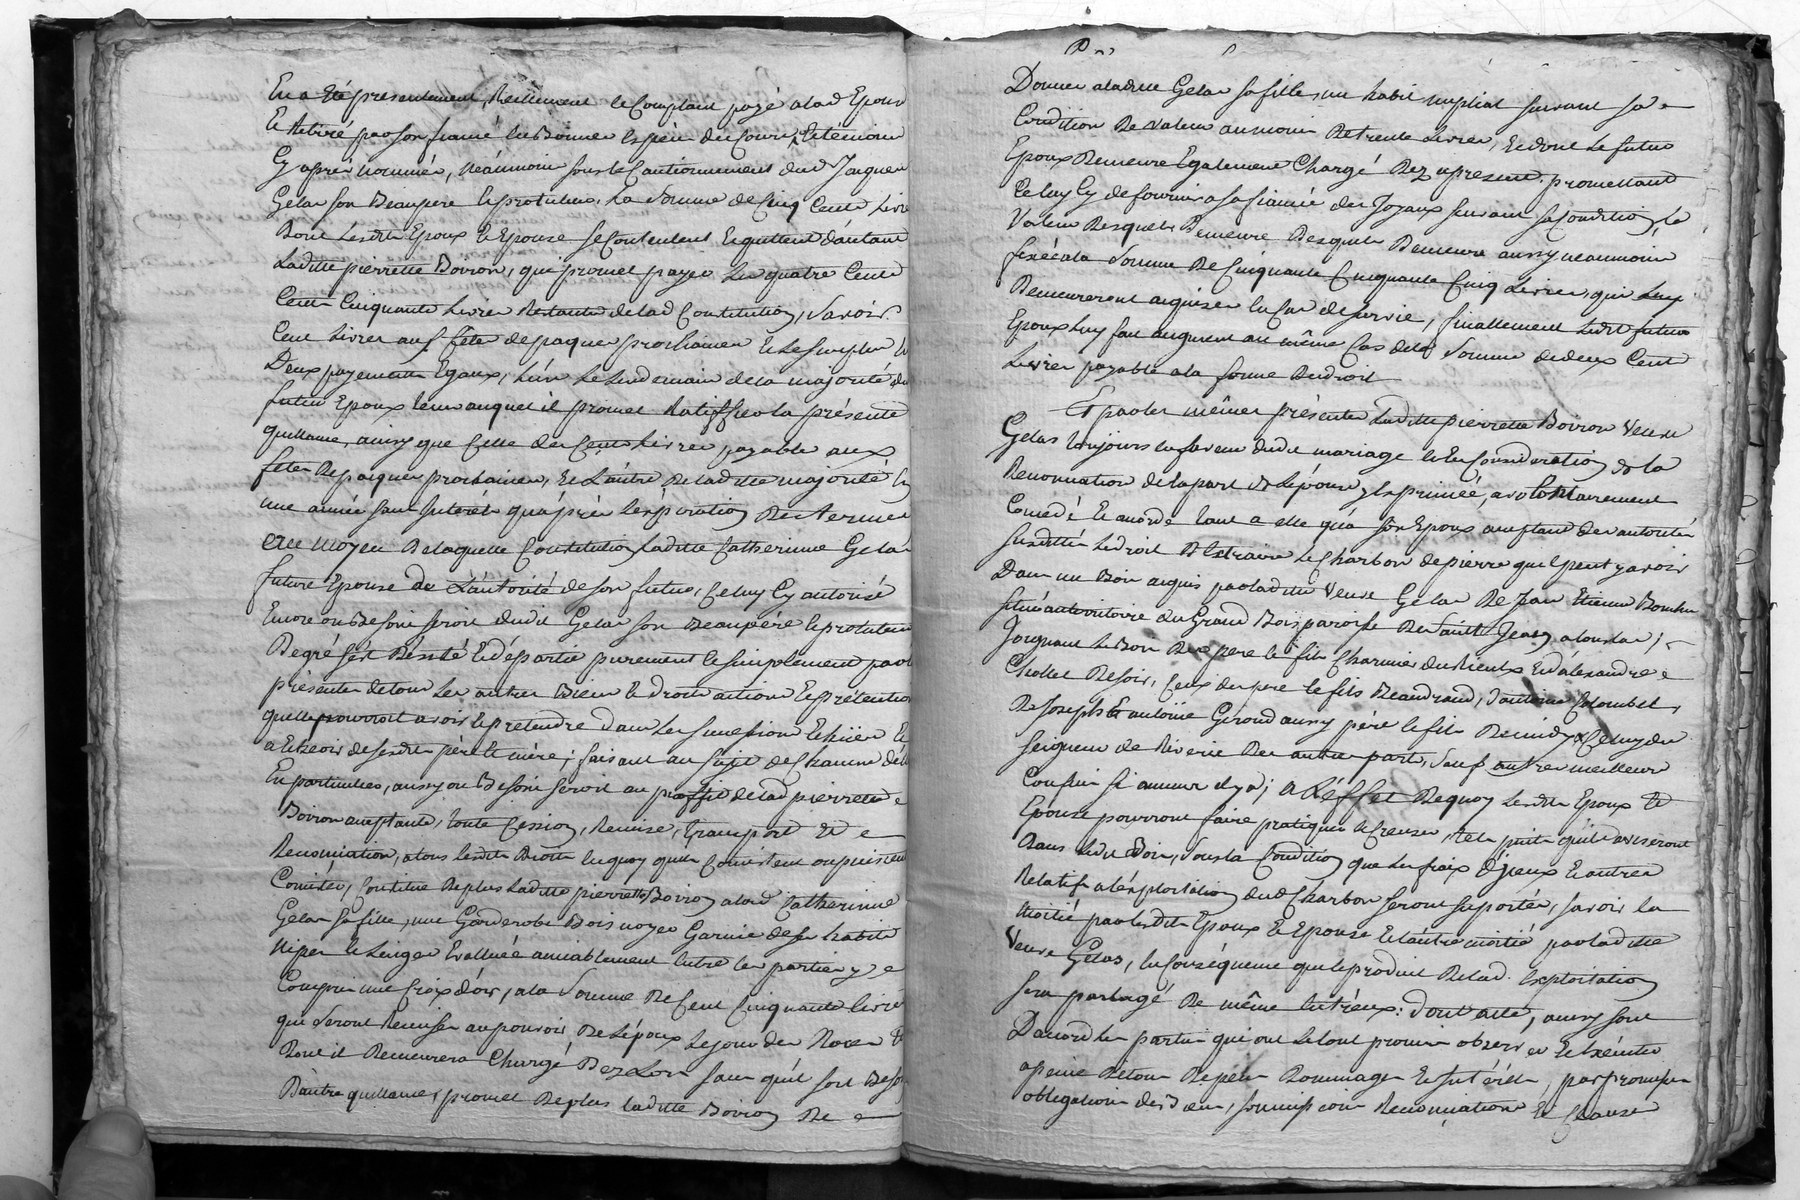 En a Eté presentement, Reellement et Comptant payé alad Epouse
Et Retiré par son fiancé en Bonnes Espèces du Cours, Et témoins
Cy après nommés, néanmoins sous le Cautionnement dud Jaques
Gelas son Beaupere le protuteur, La Somme de Cinq Cents Livre
Dont Lesdits Epoux et Epouse se Contentent En quittent d'autant
Laditte pierrette Boiron, qui promet payer Les quatre Cents
Cents Cinquante Livres Restantes de lad Constitution, Savoir
Cent Livres aux fêtes de paques prochaines Et Le Surplus En
Deux payements Egaux, L'un Le Lendemain de la majorité du
futur Epoux lors auquel il promet Ratiffier la présente
quittance, ainsy que Celle des Cents Livres, payable aux
fêtes De paques prochaines, Et L'autre De laditte majorité En
une année sans Interêt qu'après L'expiration Des termes
Au Moyen De laquelle Constitution Laditte Catherinne Gelas
future Epouse de L'autorité de son futur, Celuy Cy autorisé
Encore ou Besoin seroit dudit Gelas son Beaupére le protuteur
De gré s'est Désisté Et départie purement et simplement par les
présentes de tous Les autres Biens Et droits actions Et prétentions
quelle pourroit avoir Et pretendre dans Les successions Echües Et
a Echeoir de sesdits père Et mère; faisant au sujet de Chacune d'elle
En particulier, aussy ou Besoin seroit au proffit de lad pierrette
Boiron acceptante, toute Cession, Remise, transport Et
Renonciation, a tous lesdits Droits En quoy qu'ils Consistent ou puissent
Consister, Constitue De plus Laditte pierrette Boiron alad Catherinne
Gelas sa fille, une Garderobe Bois noyer Garnie de ses habits
Nipes Et Linges Evalluée amiablement Entre les parties y
Compris une Croix d'or, a la Somme De Cent Cinquante livres
qui seront Remises au pouvoir De L'époux Le jour des Noces Et
Dont il Demeurera Chargé Dez Lors sans qu'il soit Besoin
D'autre quittance, promet De plus laditte Boiron De
Donner a laditte Gelas sa fille, un habit nuptial suivant sa
Condition De valeur au moins De trente Livres, Et dont Le futur
Epoux Demeure Egalement Chargé Dez apresent, promettant
Celuy Cy de fournir a sa fiancée des Joyaux suivant sa Condition, la
Valeur Desquels Demeure Desquels Demeure aussy néanmoins
fixée a la Somme De Cinquante Cinquante Cinq Livres, qui Luy
Demeureront acquises En Cas de survie, finallement Ledit futur
Epoux Luy fait augment au même Cas de la Somme de deux Cent
Livres payable a la forme Du droit
Et par les mêmes présentes Laditte pierrette Boiron Veuve
Gelas toujours En faveur dudit mariage Et En Considération de la
Renonciation de la part de L'épouse y Exprimée, a volontairement
Concedé Et accordé tant a elle qu'a son Epoux acceptant des autorités
susdittes Le droit D'Extraire Le Charbon de pierre qui peut y avoir
Dans un Bois acquis par laditte Veuve Gelas De Jean Etienne
situé au territoire du Grand Bois, paroisse De Saint Jean a touslas;
Joignant Le Bois Des pere Et fils Charmier Et d'alexandre
Chollet De soir, Ceux des pere Et fils Beaudrand, d'antoine Colombet
De Joseph Et antoine Giroud aussy père Et fils De midy, Celuy du
Seigneur de Riverie Des autres parts, Sauf autres meilleurs
Confins si aucuns il y a; a L'éffet De quoy Lesdits Epoux Et
Epouse pourront faire pratiquer Et Creuser, tels puits qu'ils aviseront
Dans Ledit Bois, sous la Condition que Les fraix d'yceux Et autres
Relatifs a l'éxploitation dud Charbon seront suportés, savoir la
Moitié par Lesdits Epoux Et Epouse Et L'autre moitié par laditte
Veuve Gelas, En Conséquence que le produit De lad. Exploitation
sera partagé De même Entr'eux: dont acte, ainsy sont
D'accord Les parties qui ont Le tout promis observer et Exécuter
a peine De tous Depens Dommages Et Intérêts, par promesse
obligation de Biens, soumissions Renonciations Et Clauses